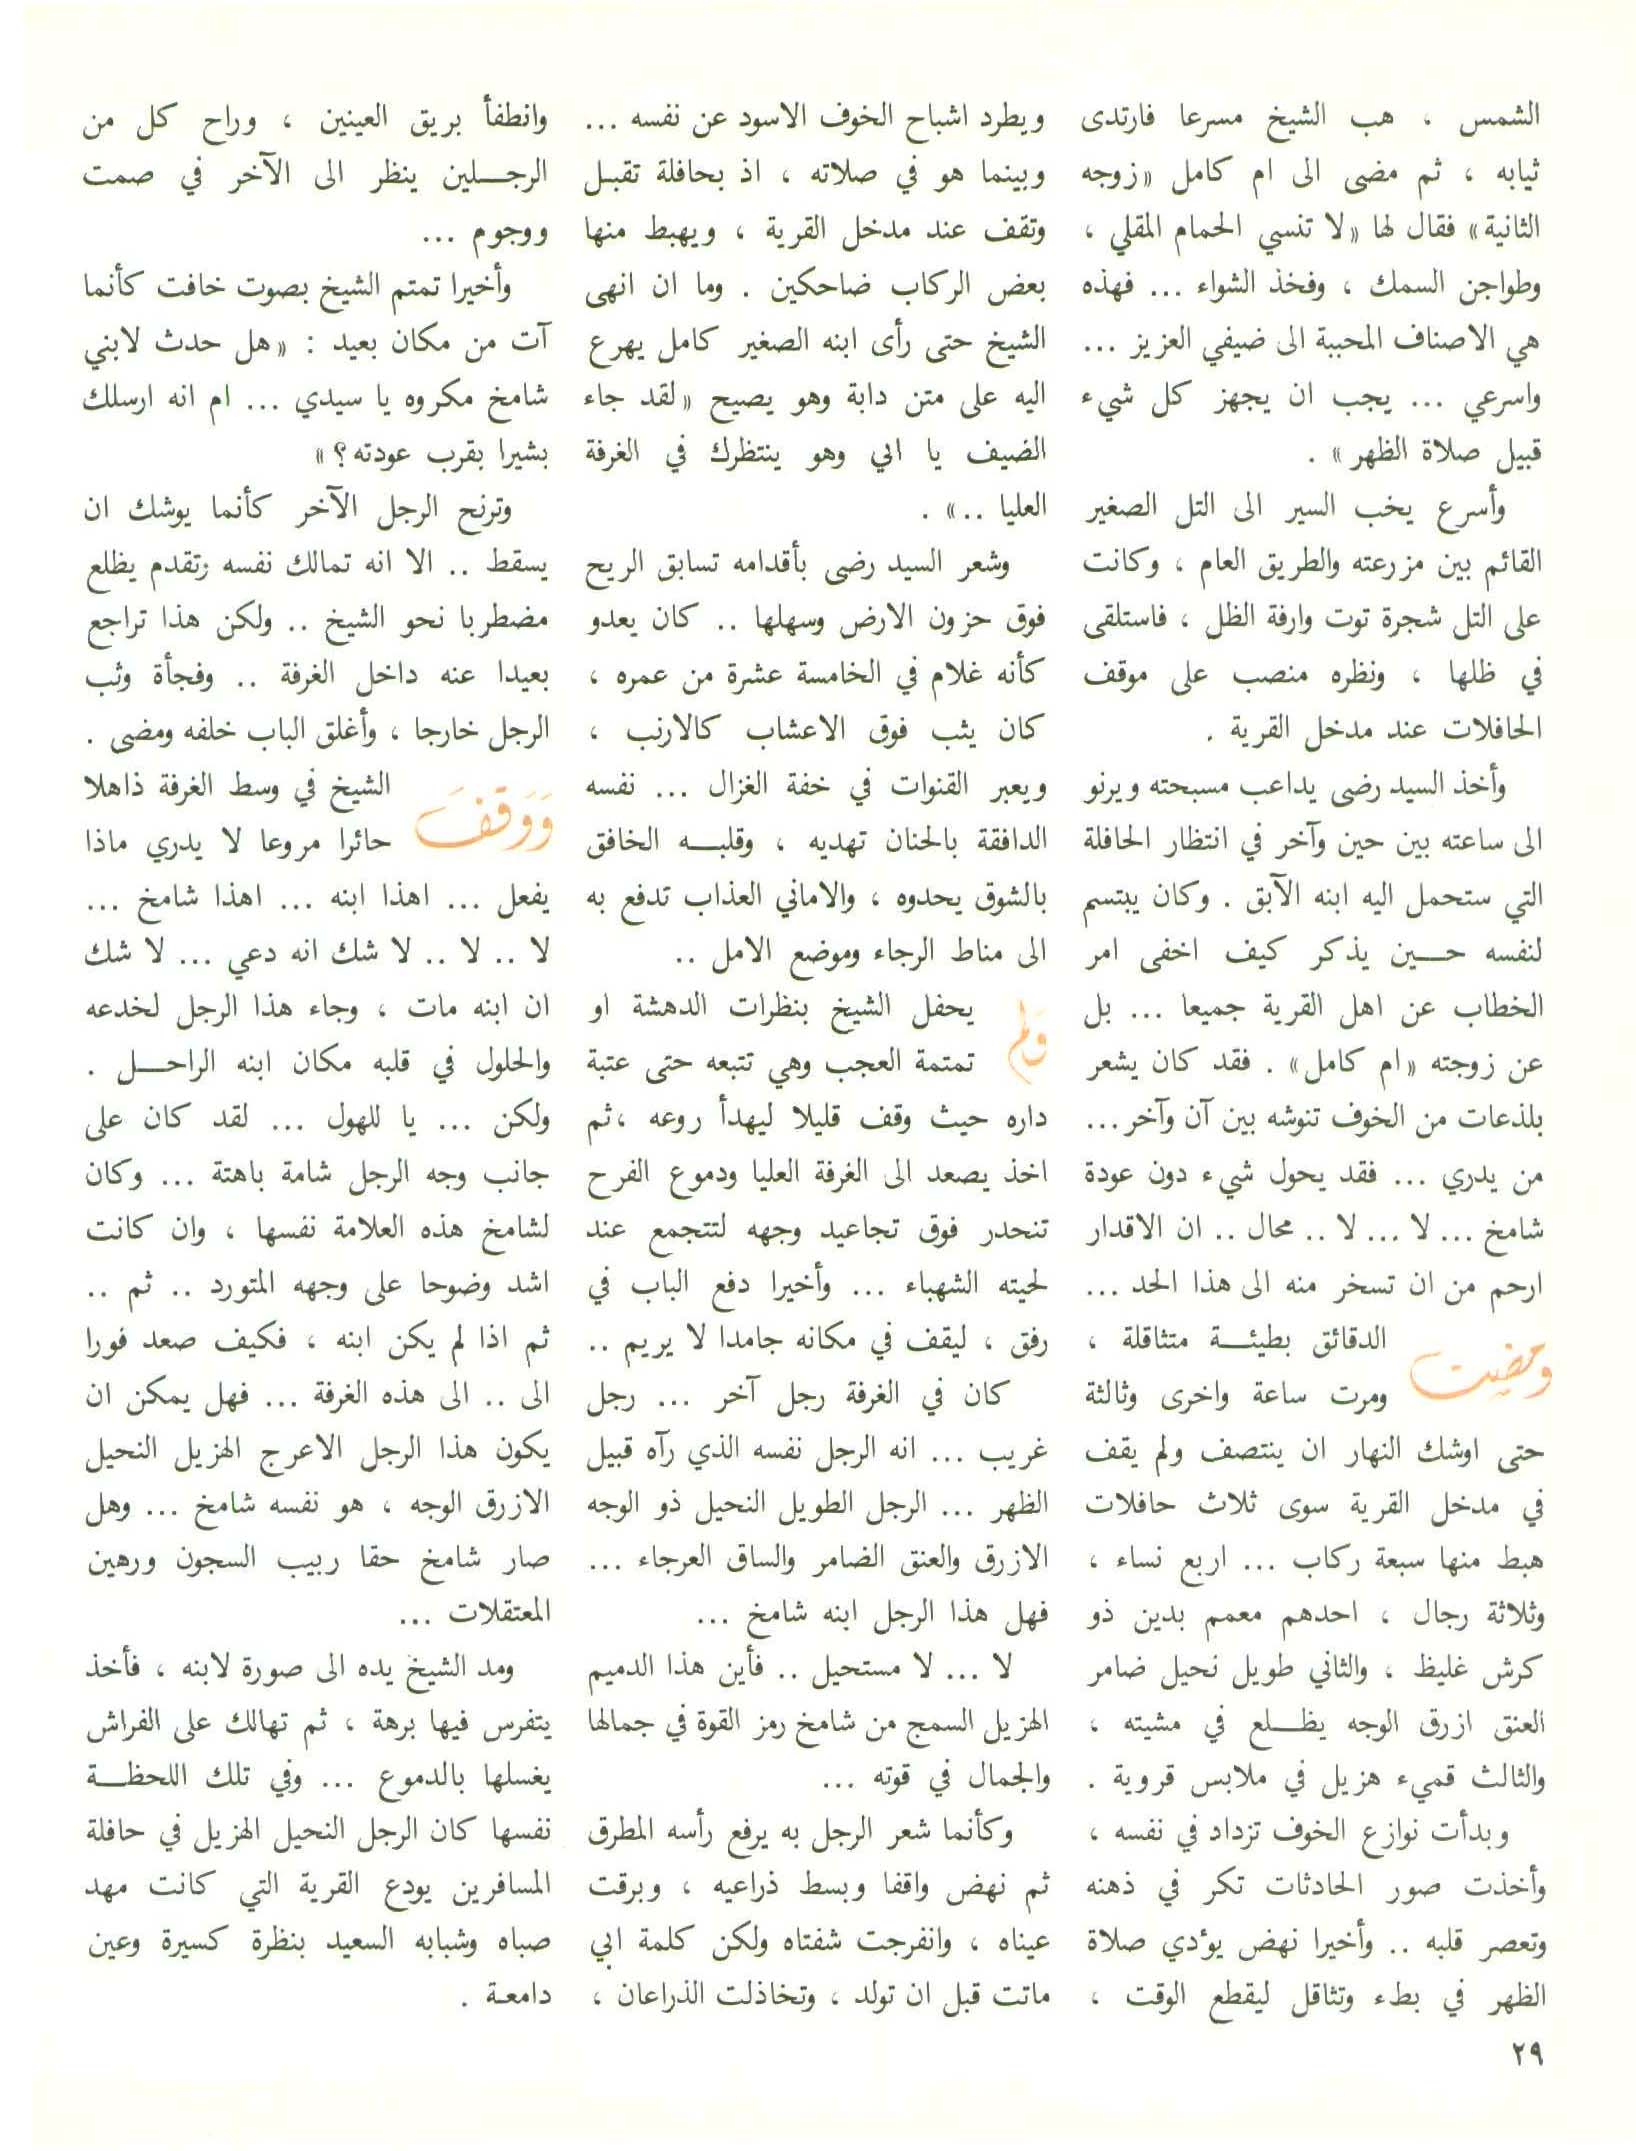 الشمس ، هب الشيخ مسرعا فارتدى
ثيابه ، ثم مضى الى ام كامل «زوجه
الثانية» فقال لها «لا تنسي الحمام المقلي ،
وطواجن السمك ، وفخذ الشواء ... فهذه
هي الاصناف المحببة الى ضيفي العزيز ...
واسرعي ... يجب ان يجهز كل شيء
قبيل صلاة الظهر» .
وأسرع يخب السير الى التل الصغير
القائم بين مزرعته والطريق العام ، وكانت
على التل شجرة توت وارفة الظل ، فاستلقى
في ظلها ، ونظره منصب على موقف
الحافلات عند مدخل القرية .
وأخذ السيد رضى يداعب مسبحته ويرنو
الى ساعته بين حين وآخر في انتظار الحافلة
التي ستحمل اليه ابنه الآبق . وكان يبتسم
لنفسه حـــين يذكر كيف اخفى امر
الخطاب عن اهل القرية جميعا ... بل
عن زوجته «ام كامل» . فقد كان يشعر
بلذعات من الخوف تنوشه بين آن وآخر ...
من يدري ... فقد يحول شيء دون عودة
شامخ ... لا ... لا .. محال .. ان الاقدار
ارحم من ان تسخر منه الى هذا الحد ...
ومضيت الدقائق بطيئـــة متثاقلة ،
ومرت ساعة واخرى وثالثة
حتى اوشك النهار ان ينتصف ولم يقف
في مدخل القرية سوى ثلاث حافلات
هبط منها سبعة ركاب ... اربع نساء ،
وثلاثة رجال ، احدهم معمم بدين ذو
كرش غليظ ، والثاني طويل نحيل ضامر
العنق ازرق الوجه يظـــلع في مشيته ،
والثالث قميء هزيل في ملابس قروية .
وبدأت نوازع الخوف تزداد في نفسه ،
وأخذت صور الحادثات تكر في ذهنه
وتعصر قلبه .. وأخيرا نهض يؤدي صلاة
الظهر في بطء وتثاقل ليقطع الوقت ،
ويطرد اشباح الخوف الاسود عن نفسه ...
وبينما هو في صلاته ، اذ بحافلة تقبـل
وتقف عند مدخل القرية ، ويهبط منها
بعض الركاب ضاحكين . وما ان انهى
الشيخ حتى رأى ابنه الصغير كامل يهرع
اليه على متن دابة وهو يصيح «لقد جاء
الضيف يا ابي وهو ينتظرك في الغرفة
العليا ..» .
وشعر السيد رضى بأقدامه تسابق الريح
فوق حزون الارض وسهلها .. كان يعدو
كأنه غلام في الخامسة عشرة من عمره ،
كان يثب فوق الاعشاب كالارنب ،
ويعبر القنوات في خفة الغزال ... نفسه
الدافقة بالحنان تهديه ، وقلبـــه الخافق
بالشوق يحدوه ، والاماني العذاب تدفع به
الى مناط الرجاء وموضع الامل ..
وَلم يحفل الشيخ بنظرات الدهشة او
تمتمة العجب وهي تتبعه حتى عتبة
داره حيث وقف قليلا ليهدأ روعه ،ثم
اخذ يصعد الى الغرفة العليا ودموع الفرح
تنحدر فوق تجاعيد وجهه لتتجمع عند
لحيته الشهباء ... وأخيرا دفع الباب في
رفق ، ليقف في مكانه جامدا لا يريم ..
كان في الغرفة رجل آخر ... رجل
غريب ... انه الرجل نفسه الذي رآه قبيل
الظهر ... الرجل الطويل النحيل ذو الوجه
الازرق والعنق الضامر والساق العرجاء ...
فهل هذا الرجل ابنه شامخ ...
لا ... لا مستحيل .. فأين هذا الدميم
الهزيل السمج من شامخ رمز القوة في جمالها
والجمال في قوته ...
وكأنما شعر الرجل به يرفع رأسه المطرق
ثم نهض واقفا وبسط ذراعيه ، وبرقت
عيناه ، وانفرجت شفتاه ولكن كلمة ابي
ماتت قبل ان تولد ، وتخاذلت الذراعان ،
وانطفأ بريق العينين ، وراح كل من
الرجـــلين ينظر الى الآخر في صمت
ووجوم ...
وأخيرا تمتم الشيخ بصوت خافت كأنما
آت من مكان بعيد : «هل حدث لابني
شامخ مكروه يا سيدي ... ام انه ارسلك
بشيرا بقرب عودته؟»
وترنح الرجل الآخر كأنما يوشك ان
يسقط .. الا انه تمالك نفسه وتقدم يظلع
مضطربا نحو الشيخ .. ولكن هذا تراجع
بعيدا عنه داخل الغرفة .. وفجأة وثب
الرجل خارجا ، وأغلق الباب خلفه ومضى .
وَوَقفَ الشيخ في وسط الغرفة ذاهلا
حائرا مروعا لا يدري ماذا
يفعل ... اهذا ابنه ... اهذا شامخ ...
لا .. لا .. لا شك انه دعي ... لا شك
ان ابنه مات ، وجاء هذا الرجل لخدعه
والحلول في قلبه مكان ابنه الراحـــل .
ولكن ... يا للهول ... لقد كان على
جانب وجه الرجل شامة باهتة ... وكان
لشامخ هذه العلامة نفسها ، وان كانت
اشد وضوحا على وجهه المتورد .. ثم ..
ثم اذا لم يكن ابنه ، فكيف صعد فورا
الى .. الى هذه الغرفة ... فهل يمكن ان
يكون هذا الرجل الاعرج الهزيل النحيل
الازرق الوجه ، هو نفسه شامخ ... وهل
صار شامخ حقا ربيب السجون ورهين
المعتقلات ...
ومد الشيخ يده الى صورة لابنه ، فأخذ
يتفرس فيها برهة ، ثم تهالك على الفراش
يغسلها بالدموع ... وفي تلك اللحظـــة
نفسها كان الرجل النحيل الهزيل في حافلة
المسافرين يودع القرية التي كانت مهد
صباه وشبابه السعيد بنظرة كسيرة وعين
دامعـة .
٢٩